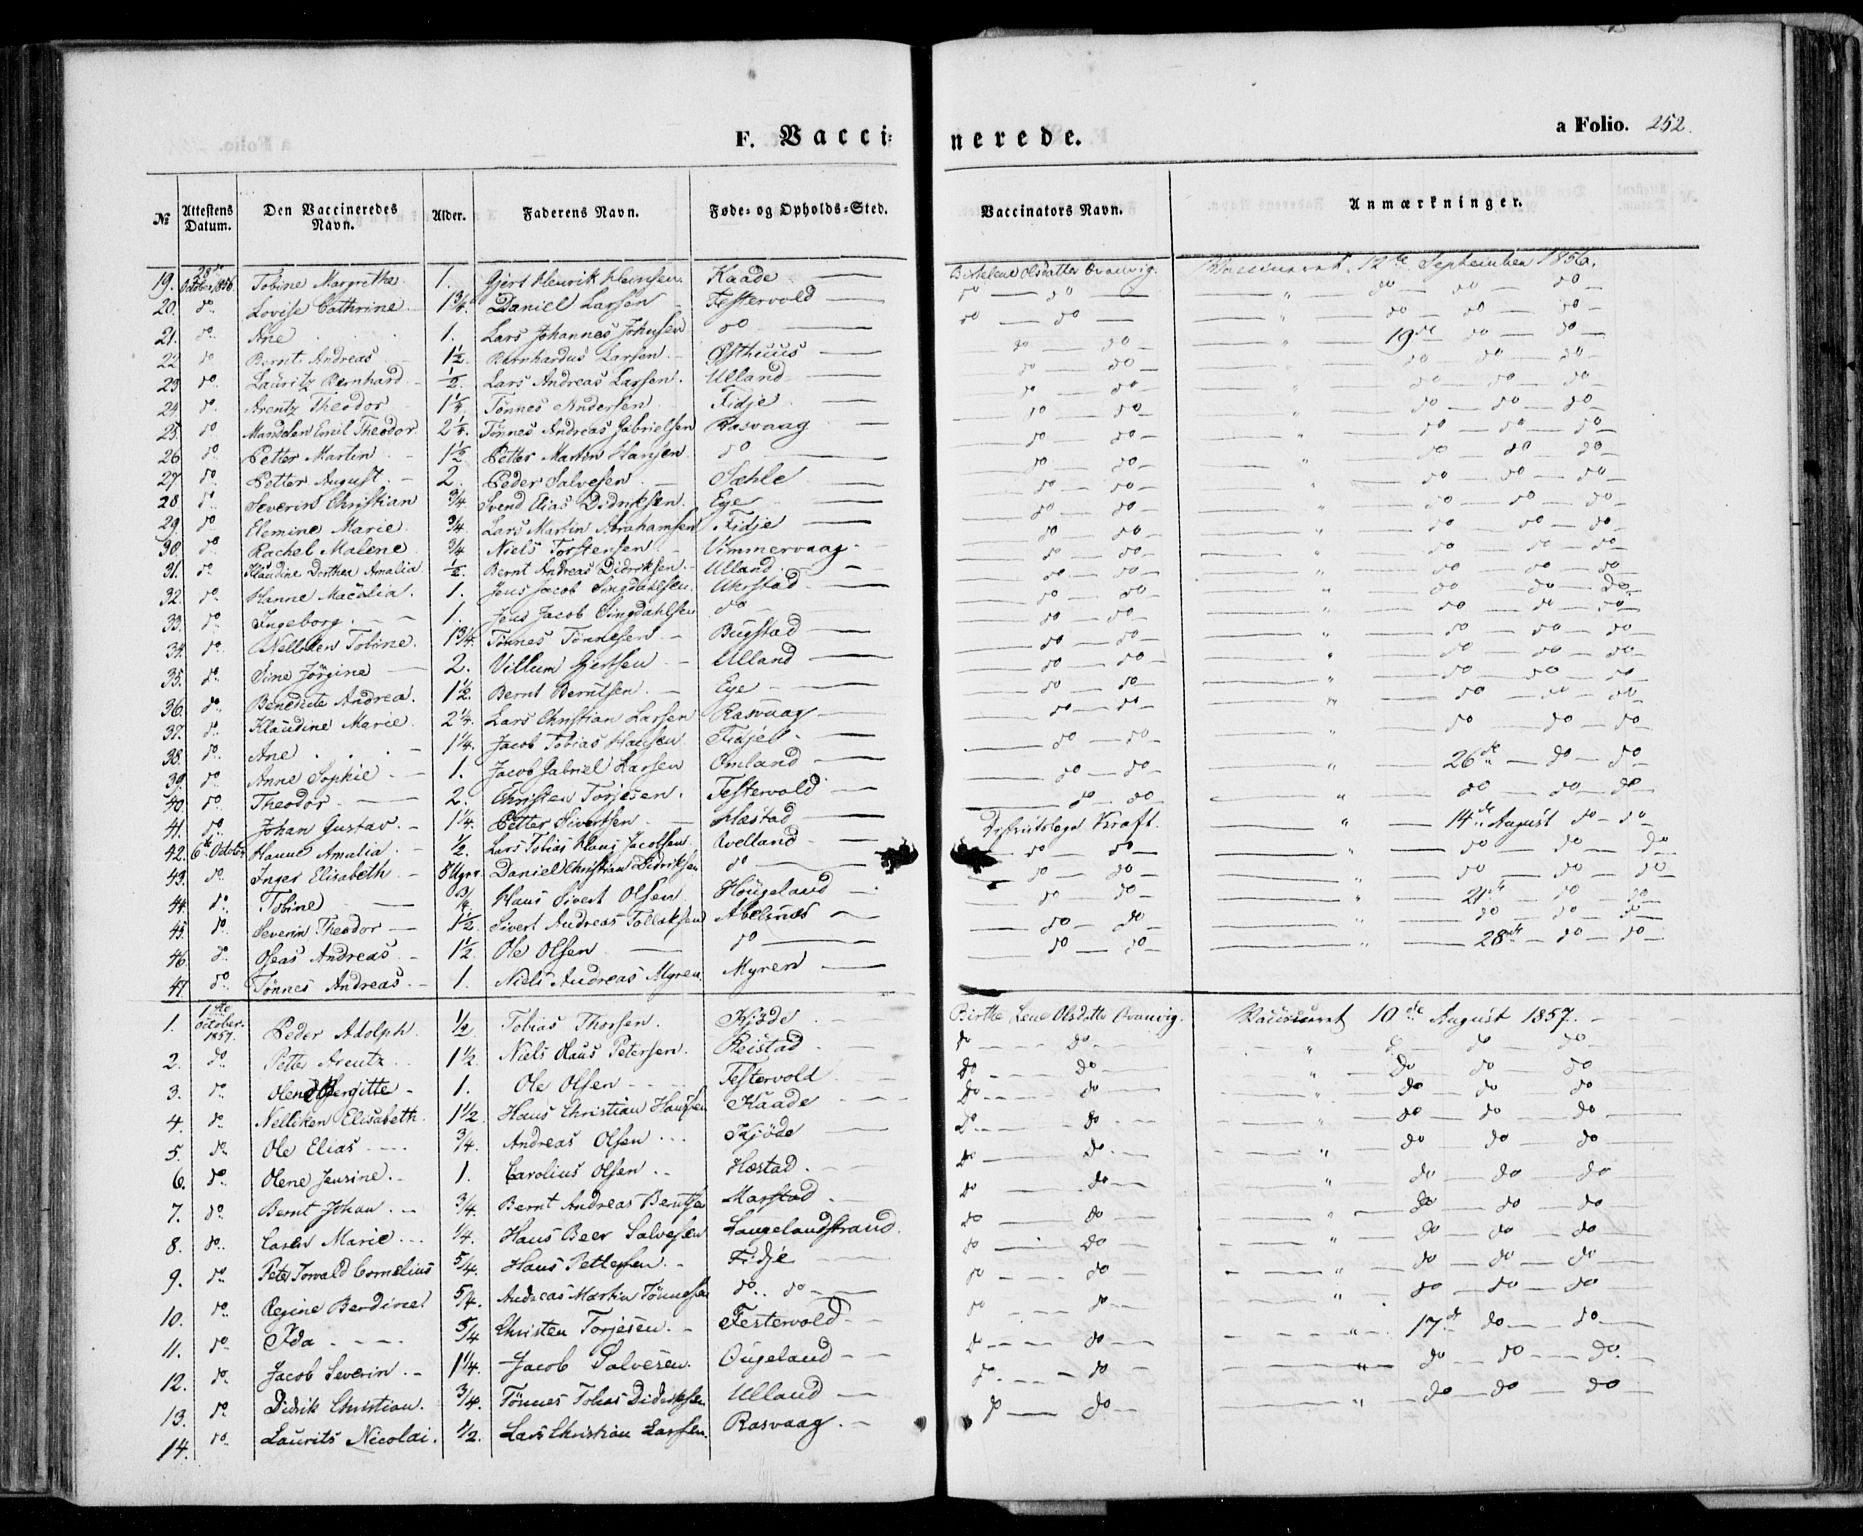 F. Vacci-
nerede.
a Folio. 252.
№ Attestens Datum. Den Vaccineredes Navn. Alder. Faderens Navn. Føde- og Opholds-Sted. Vaccinators Navn. Anmærkninger.
19. 28de October 1856. Tobine Margrethe 1. Gjert Henrik Heinsen Kaade Birthelene Olsdatter Qvanvig. Vaccineret 12te September 1856.
20. do Lovise Cathrine 1 3/4. Daniel Larsen Festervold do do " do do do
21. do Ane 1. Lars Johannes Johnsen do do do " do do do
22 do Bernt Andreas 1 1/2. Bernhardus Larsen Østhuus do do " 19de do do
23 do Lauritz Bernhard 1/2. Lars Andreas Larsen. Ulland do do " do do do
24 do Arentz Theodor 1 1/4. Tønnes Andersen Fidje do do " do do do
25. do Mandolen Emil Theodor 2 1/4. Tønnes Andreas Gabrielsen Rasvaag do do " do do do
26 do Petter Martin 1 1/2 Petter Martin Hansen do do do " do do do
27 do Petter August 2. Peder Salvesen Sæhle do do " do do do
28 do Severin Christian 3/4. Svend Elias Didriksen. Eye do do " do do do
29. do Elemine Marie 3/4. Lars Martin Abrahamsen Fidje do do " do do do
30. do Rachel Malene 3/4 Niels Torstensen Vimmervaag do do " do do do
31. do Klaudine Dorthea Amalia 1/2. Bernt Andreas Didriksen. Ulland. do do " do do do
32. do Hanne Macalia. 1. Jens Jacob Singdahlsen. Uhrstad do do " do do do
33. do Ingeborg. 1. Jens Jacob Singdahlsen do do do " do do do
34. do Nelliken Tobine. 1 3/4. Tønnes Tønnesen Bugstad do do " do do do
35. do Sine Jørgine 2. Villum Gjertsen Ulland do do " do do do
36. do Benedicte Andrea. 1 1/2. Bernt Berntsen. Eye do do " do do do
37. do Klaudine Marie 2 1/4. Lars Christian Larsen Rasvaag do do " do do do
38. do Ane 1 1/4. Jacob Tobias Hansen Fidje do do " do do do
39. do Anne Sophie 1. Jacob Gabriel Larsen Omland do do " 26de do do
40. do Theodor 2. Christen Torjesen. Festervold do do " do do do
41. do Johan Gustav. 1 1/4. Petter Sivertsen Hæstad Districtslæge Kraft. " 14de August do do
42. 6te October Hanne Amalia 1/2. Lars Tobias Klaus Jacobsen Qvelland do do " do do do
43. do Inger Elisabeth 8 Uger Daniel Christian Didriksen do do do " do do do
44. do Tobine 3/4. Hans Sivert Olsen Hougeland do do " 21de do do
45. do Severin Theodor 1 1/2 Sivert Andreas Tollaksen Abelnæs do do " do do do
46. do Oseas Andreas 1 1/2. Ole Olsen do do do " 28de do do
47. do Tønnes Andreas. 1. Niels Andreas Myren Myren
1. 1ste October. 1857. Peder Adolph. 1/2. Tobias Thorsen. Kjøde Birthe Lene Olsdatter Qvanvig. Vaccineret 10de August 1857.
2. do Petter Arentz 1 1/2 Niels Klaus Petersen. Reistad do do " do do do
3. do Olene Bergitte 1. Ole Olsen Festervold do do " do do do
4. do Nelliken Elisabeth. 1 1/2. Hans Christian Hansen Kaade do do " do do do
5. do Ole Elias 3/4. Andreas Olsen Kjøde do do " do do do
6. do Olene Jensine. 1. Carolius Olsen Hæstad. do do " do do do
7. do Bernt Johan 3/4. Bernt Andreas Berntsen Marstad do do " do do do
8. do Caren Marie 1/4. Hans Beer Salvesen Langelandstrand. do do " do do do
9. do Peter Torvald Cornelius 5/4. Hans Pettersen. Fidje do do " do do do
10. do Regine Berdine 5/4. Andreas Martin Tønnesen do do do do " do do do
11. do Ida 5/4 Christen Torjesen. Festervold do do " 17de do do
12. do Jacob Severin 1 1/4. Jacob Salvesen. Ougeland do do " do do do.
13. do Didrik Christian. 3/4. Tønnes Tobias Didriksen Ulland do do " do do do
14. do Laurits Nicolai. 1/2. Lars Christian Larsen. Rasvaag.